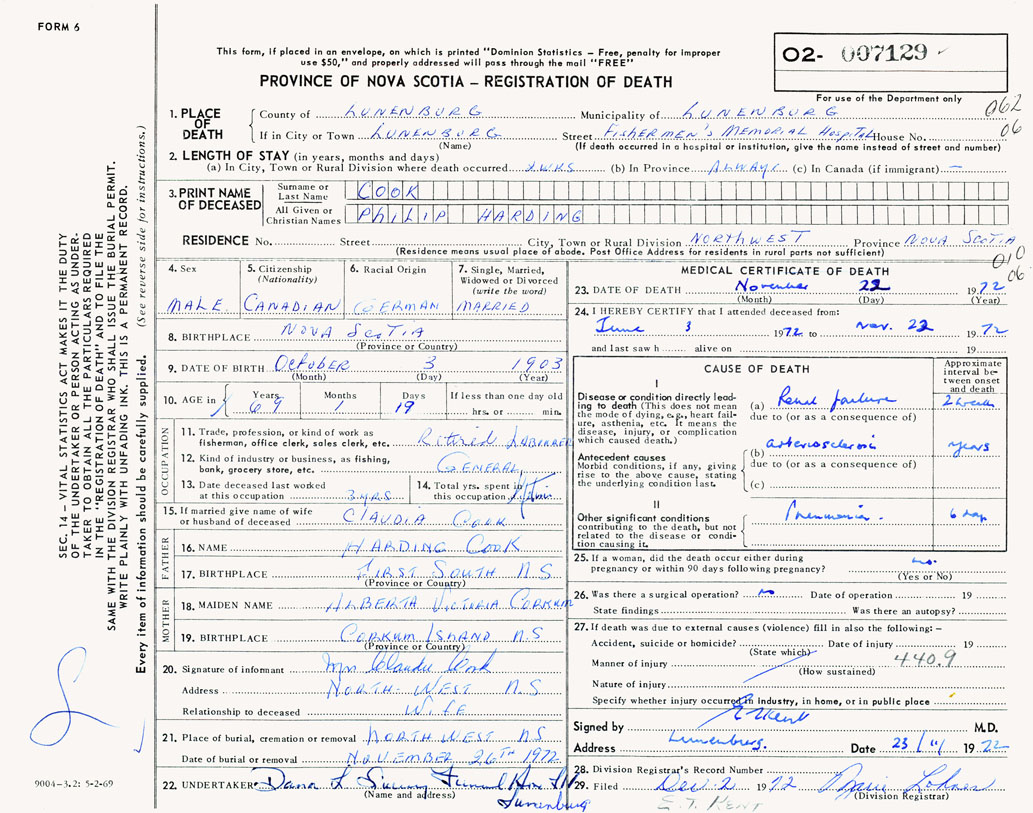 FORM 6
This form, if placed in an envelope, on which is printed "Dominion Statistics – Free, penalty for improper
use $50," and properly addressed will pass through the mail "FREE"
PROVINCE OF NOVA SCOTIA – REGISTRATION OF DEATH
O2- 007129
For use of the Department only
062
06
1. PLACE OF DEATH
County of LUNENBURG Municipality of LUNENBURG
If in City or Town LUNENBURG Street FISHERMEN'S MEMORIAL HOSPITAL House No.
(Name) (If death occurred in a hospital or institution, give the name instead of street and number)
2. LENGTH OF STAY (in years, months and days)
(a) In City, Town or Rural Division where death occurred WKS (b) In Province ALWAYS (c) In Canada (if immigrant) —
3. PRINT NAME OF DECEASED
Surname or Last Name COOK
All Given or Christian Names PHILIP HARDING
RESIDENCE No. Street City, Town or Rural Division NORTHWEST Province NOVA SCOTIA
(Residence means usual place of abode. Post Office Address for residents in rural parts not sufficient)
010
06
4. Sex MALE
5. Citizenship (Nationality) CANADIAN
6. Racial Origin GERMAN
7. Single, Married, Widowed or Divorced (write the word) MARRIED
8. BIRTHPLACE NOVA SCOTIA
(Province or Country)
9. DATE OF BIRTH OCTOBER 3 1903
(Month) (Day) (Year)
10. AGE in Years 69 Months 1 Days 19 If less than one day old hrs. or min.
OCCUPATION
11. Trade, profession, or kind of work as
fisherman, office clerk, sales clerk, etc. RETIRED LABOURER
12. Kind of industry or business, as fishing,
bank, grocery store, etc. GENERAL
13. Date deceased last worked
at this occupation 3 YRS
14. Total yrs. spent in
this occupation
15. If married give name of wife
or husband of deceased CLAUDIA COOK
FATHER
16. NAME HARDING COOK
17. BIRTHPLACE FIRST SOUTH N S
(Province or Country)
MOTHER
18. MAIDEN NAME ALBERTA VICTORIA CORKUM
19. BIRTHPLACE CORKUM ISLAND N.S
(Province or Country)
20. Signature of informant Mrs Claudia Cook
Address NORTH-WEST N.S
Relationship to deceased WIFE
21. Place of burial, cremation or removal NORTH WEST NS
Date of burial or removal NOVEMBER 26TH 1972
22. UNDERTAKER Dana L Funeral Home
(Name and address) Lunenburg
MEDICAL CERTIFICATE OF DEATH
23. DATE OF DEATH November 22 1972
(Month) (Day) (Year)
24. I HEREBY CERTIFY that I attended deceased from:
June 3 1972 to Nov. 22 1972
and last saw h alive on 19
CAUSE OF DEATH
Approximate interval between onset and death
I
Disease or condition directly leading to death (This does not mean the mode of dying, e.g., heart failure, asthenia, etc. It means the disease, injury, or complication which caused death.)
(a) Renal failure 2 weeks
due to (or as a consequence of)
Antecedent causes
Morbid conditions, if any, giving rise to the above cause, stating the underlying condition last.
(b) arteriosclerosis years
due to (or as a consequence of)
(c)
II
Other significant conditions contributing to the death, but not related to the disease or condition causing it.
Pneumonia. 6 days
25. If a woman, did the death occur either during
pregnancy or within 90 days following pregnancy? no.
(Yes or No)
26. Was there a surgical operation? no Date of operation 19
State findings Was there an autopsy?
27. If death was due to external causes (violence) fill in also the following: –
Accident, suicide or homicide? Date of injury 19
(State which)
440.9
Manner of injury
(How sustained)
Nature of injury
Specify whether injury occurred in industry, in home, or in public place
Signed by E T Kent M.D.
Address Lunenburg. Date 23/11 1972
28. Division Registrar's Record Number
29. Filed Dec. 2 1972 Lohnes
(Division Registrar)
E. T. KENT
SEC. 14 – VITAL STATISTICS ACT MAKES IT THE DUTY
OF THE UNDERTAKER OR PERSON ACTING AS UNDER-
TAKER TO OBTAIN ALL THE PARTICULARS REQUIRED
IN THE "REGISTRATION OF DEATH" AND TO FILE THE
SAME WITH THE DIVISION REGISTRAR WHO SHALL ISSUE THE BURIAL PERMIT.
WRITE PLAINLY WITH UNFADING INK. THIS IS A PERMANENT RECORD.
Every item of information should be carefully supplied. (See reverse side for instructions.)
9004-3.2: 5-2-69